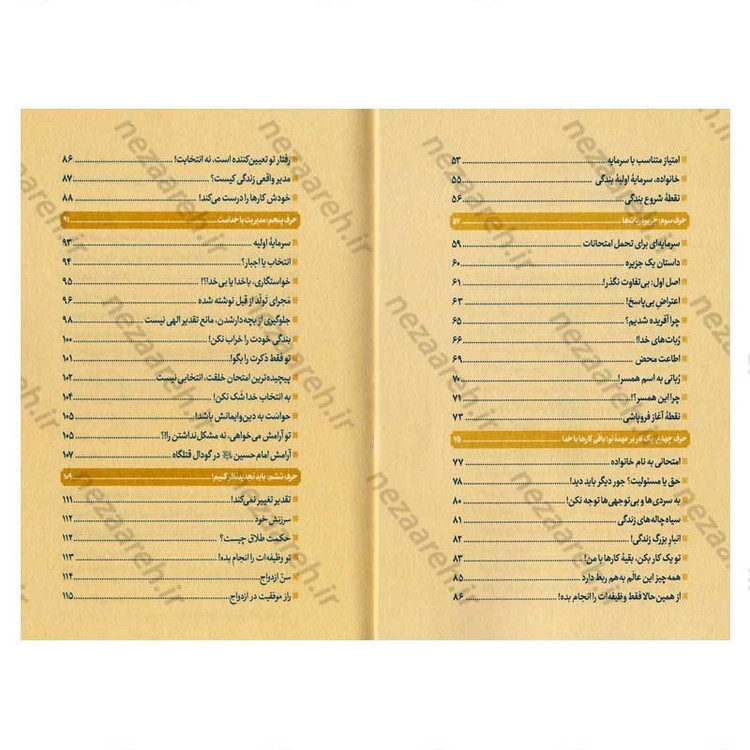 امتیاز متناسب با سرمایه ۵۳
خانواده، سرمایهٔ اولیهٔ بندگی ۵۵
نقطهٔ شروع بندگی ۵۶
حرف سوم: جزیرهٔ ربات‌ها ۵۷
سرمایه‌ای برای تحمل امتحانات ۵۹
داستان یک جزیره ۶۰
اصل اول: بی‌تفاوت نگذر! ۶۱
اعتراض بی‌پاسخ! ۶۳
چرا آفریده شدیم؟ ۶۵
رُبات‌های خدا!! ۶۶
اطاعت محض ۶۹
رُباتی به اسم همسر! ۷۰
چرا این همسر؟! ۷۱
نقطهٔ آغاز فروپاشی ۷۳
حرف چهارم: یک کار بر عهدهٔ تو؛ باقی کارها با خدا ۷۵
امتحانی به نام خانواده ۷۷
حق یا مسئولیت؟ جور دیگر باید دید! ۷۸
به سردی‌ها و بی‌توجهی‌ها توجه نکن! ۸۰
سیاه‌چاله‌های زندگی ۸۱
انبار بزرگ زندگی! ۸۲
تو یک کار بکن، بقیهٔ کارها با من! ۸۳
همه‌چیز این عالَم به‌هم ربط دارد ۸۵
از همین حالا فقط وظیفه‌ات را انجام بده! ۸۶
رفتار تو تعیین‌کننده است، نه انتخابت! ۸۶
مدیر واقعی زندگی کیست؟ ۸۷
خودش کارها را درست می‌کند! ۸۸
حرف پنجم: مدیریت با خداست ۹۱
سرمایهٔ اولیه ۹۳
انتخاب یا اجبار؟ ۹۴
خواستگاری، باخدا یا بی‌خدا؟! ۹۵
مَجرای تولّد از قبل نوشته شده ۹۶
جلوگیری از بچه‌دارشدن، مانع تقدیر الهی نیست ۹۸
بندگی خودت را خراب نکن! ۱۰۰
تو فقط ذکرت را بگو! ۱۰۱
پیچیده‌ترین امتحان خلقت، انتخابی نیست ۱۰۲
به انتخاب خدا شک نکن! ۱۰۴
حواست به دین‌وایمانش باشد! ۱۰۵
تو آرامش می‌خواهی، نه مشکل نداشتن را!؟ ۱۰۵
آرامش امام حسین در گودال قتلگاه ۱۰۷
حرف ششم: باید تجدیدنظر کنیم! ۱۰۹
تقدیر تغییر نمی‌کند! ۱۱۱
سرزنش خود ۱۱۲
حکمت طلاق چیست؟ ۱۱۲
تو وظیفه‌ات را انجام بده! ۱۱۳
سنّ ازدواج ۱۱۴
راز موفقیت در ازدواج ۱۱۵
nezaareh.ir
nezaareh.ir
nezaareh.ir
nezaareh.ir
nezaareh.ir
nezaareh.ir
nezaareh.ir
nezaareh.ir